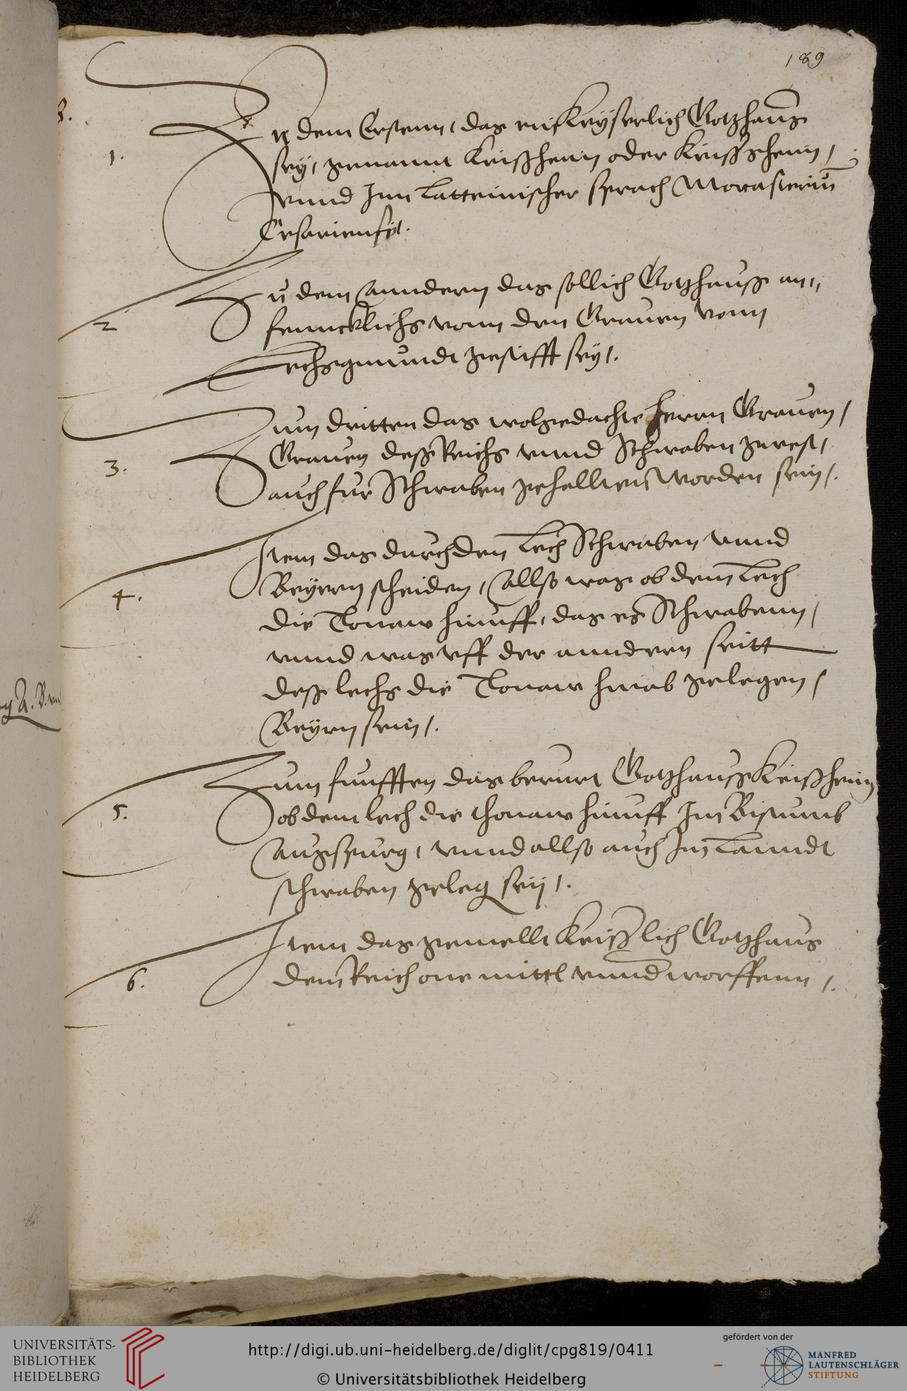 189
1. Zu dem Ersten, das ein Keyserlich Gotzhauß
sey, genannt Keißheim oder Keissheim,
unnd Inn Latteinischer sprach Monasterium
Cesariensis.
2 Zu dem Anndern das sollich Gotzhauß an,,
fenncklichs vonn den Graven vonn
Lechsgmundt gestifft sey.
3. Zum dritten das wolgedachte herrn Graven,
Graven deß Reichs unnd Schwaben gwest,
auch fur Schwaben gehallten worden sein.
4. Item das durch den Lech Schwaben unnd
Beyern scheiden, Allso was ob dem Lech
die Tonaw hinuff, das es Schwabenn,
unnd was uff der anndern seitt
deß Lechs die Tonaw hinab gelegen,
Beyrn sein.
5. Zum funfften das berurt Gotzhauß Keißheim
ob dem lech die thonaw hinuff Im Bistumb
Augspurg, unnd allso auch Im Lanndt
schwaben geleg sey.
6. Item das gemellt Keißlich Gotzhaus
dem Reich one mittl unnderworffenn.
UNIVERSITÄTS-
BIBLIOTHEK
HEIDELBERG
http://digi.ub.uni-heidelberg.de/diglit/cpg819/0411
© Universitätsbibliothek Heidelberg
gefördert von der
MANFRED
LAUTENSCHLÄGER
STIFTUNG